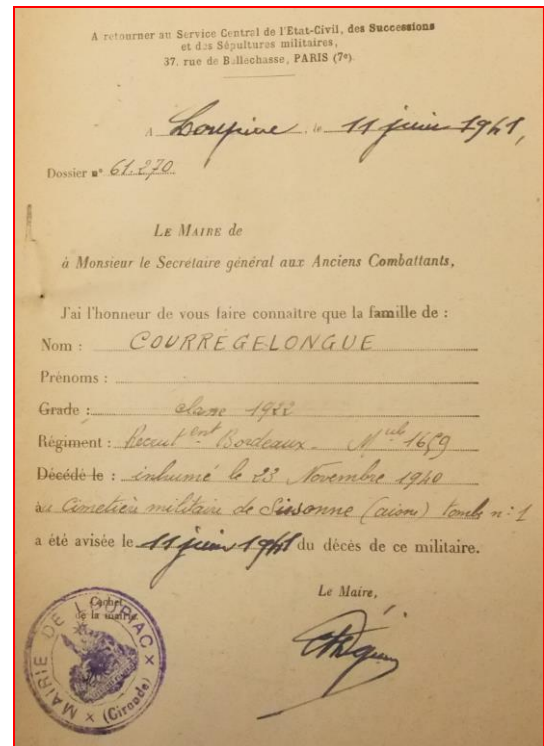 A retourner au Service Central de l'Etat-Civil, des Successions
et des Sépultures militaires,
37, rue de Bellechasse, PARIS (7e).
A Loupiac, le 11 juin 1941,
Dossier n° 61.270.
LE MAIRE de
à Monsieur le Secrétaire général aux Anciens Combattants,
J'ai l'honneur de vous faire connaître que la famille de :
Nom : COURRÉGELONGUE
Prénoms :
Grade : classe 1922
Régiment : Recrutent Bordeaux - Mle 1659
Décédé le : inhumé le 23 Novembre 1940
au Cimetière militaire de Sissonne (aisne) tombe n: 1
a été avisée le 11 juin 1941 du décès de ce militaire.
Le Maire,
Cachet
de la mairie
MAIRIE DE LOUPIAC
(Gironde)